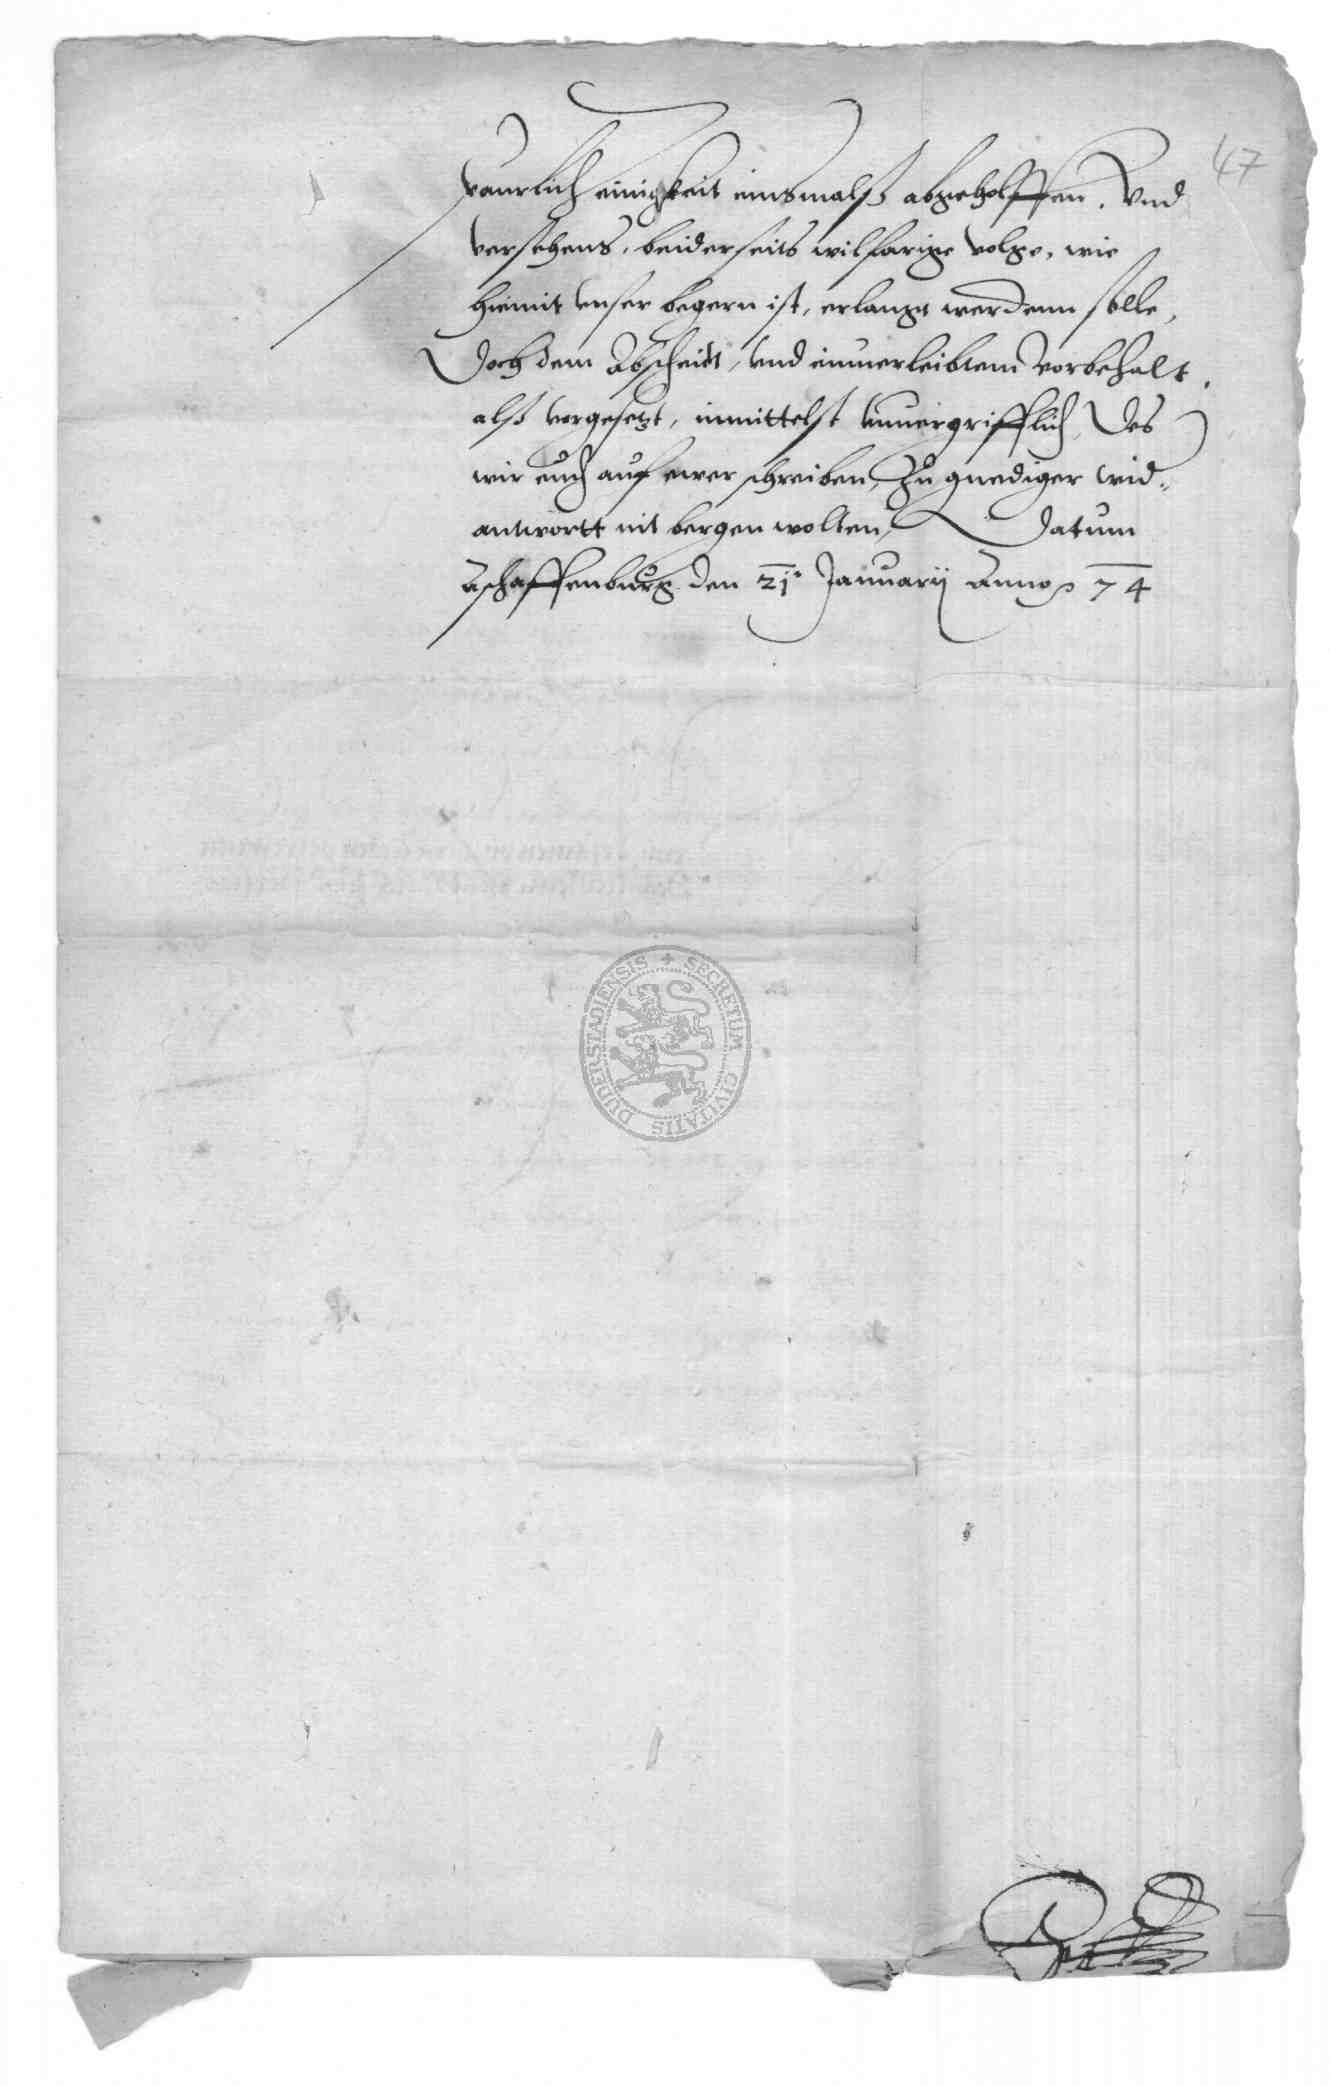 47
einigkeit einsmalß abgeholffen, Vnd
versehens, beiderseits wilfarige volge, wie
hiemit vnser begern ist, erlangt werdenn solle,
Doch dem Abscheidt, vnd einuerleibtem vorbehalt,
alß vorgesetzt, inmittelst vnuergrifflich, Des
wir euch auf ewer schreiben, Zu gnediger wid„
antwortt nit bergen wolten, Datum
Aschaffenburg den 21. Januarij Anno 74
SECRETUM CIVITATIS DUDERSTADIENSIS